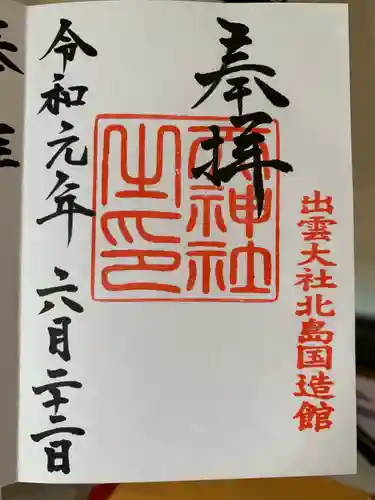 奉拝
出雲大社北島国造館
神社
之印
令和元年 六月二十二日